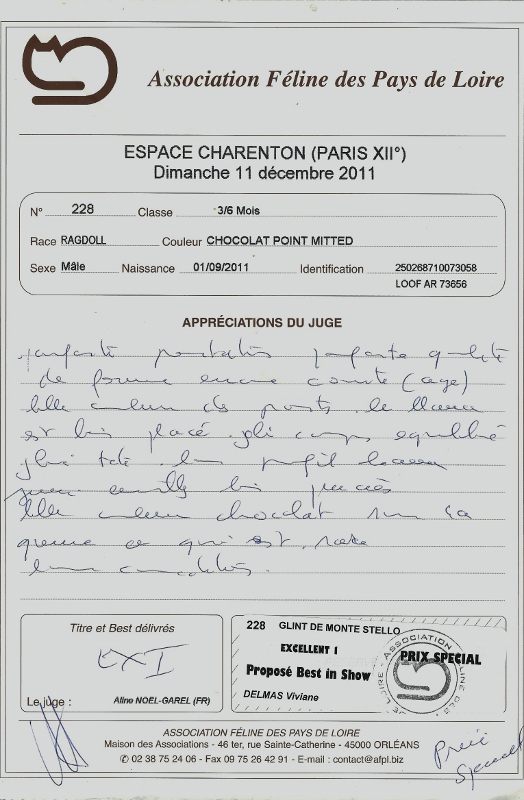 Association Féline des Pays de Loire
ESPACE CHARENTON (PARIS XII°)
Dimanche 11 décembre 2011
N° 228 Classe 3/6 Mois
Race RAGDOLL Couleur CHOCOLAT POINT MITTED
Sexe Mâle Naissance 01/09/2011 Identification 250268710073058
LOOF AR 73656
APPRÉCIATIONS DU JUGE
parfaite qualité
de forme encore courte (age)
belle couleur de points le blanc
est bien placé joli corps equilibré
jolie tete profil
bien placées
belle couleur chocolat sur sa
queue ce qui est rare
Titre et Best délivrés
EXI
Le juge : Aline NOEL-GAREL (FR)
228 GLINT DE MONTE STELLO
EXCELLENT 1
PRIX SPECIAL
Proposé Best in Show
DELMAS Viviane
ASSOCIATION FÉLINE DES PAYS DE LOIRE
Maison des Associations - 46 ter, rue Sainte-Catherine - 45000 ORLÉANS
✆ 02 38 75 24 06 - Fax 09 75 26 42 91 - E-mail : contact@afpl.biz
Prix
Special